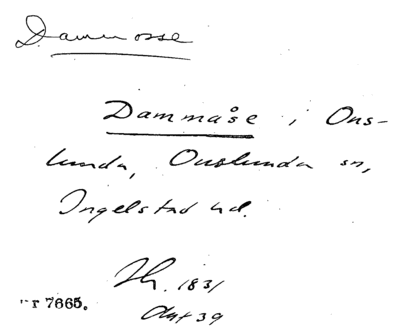 Dammosse
Dammåse i Ons-
lunda, Onslunda sn,
Ingelstad hd.
1831
r 7665.